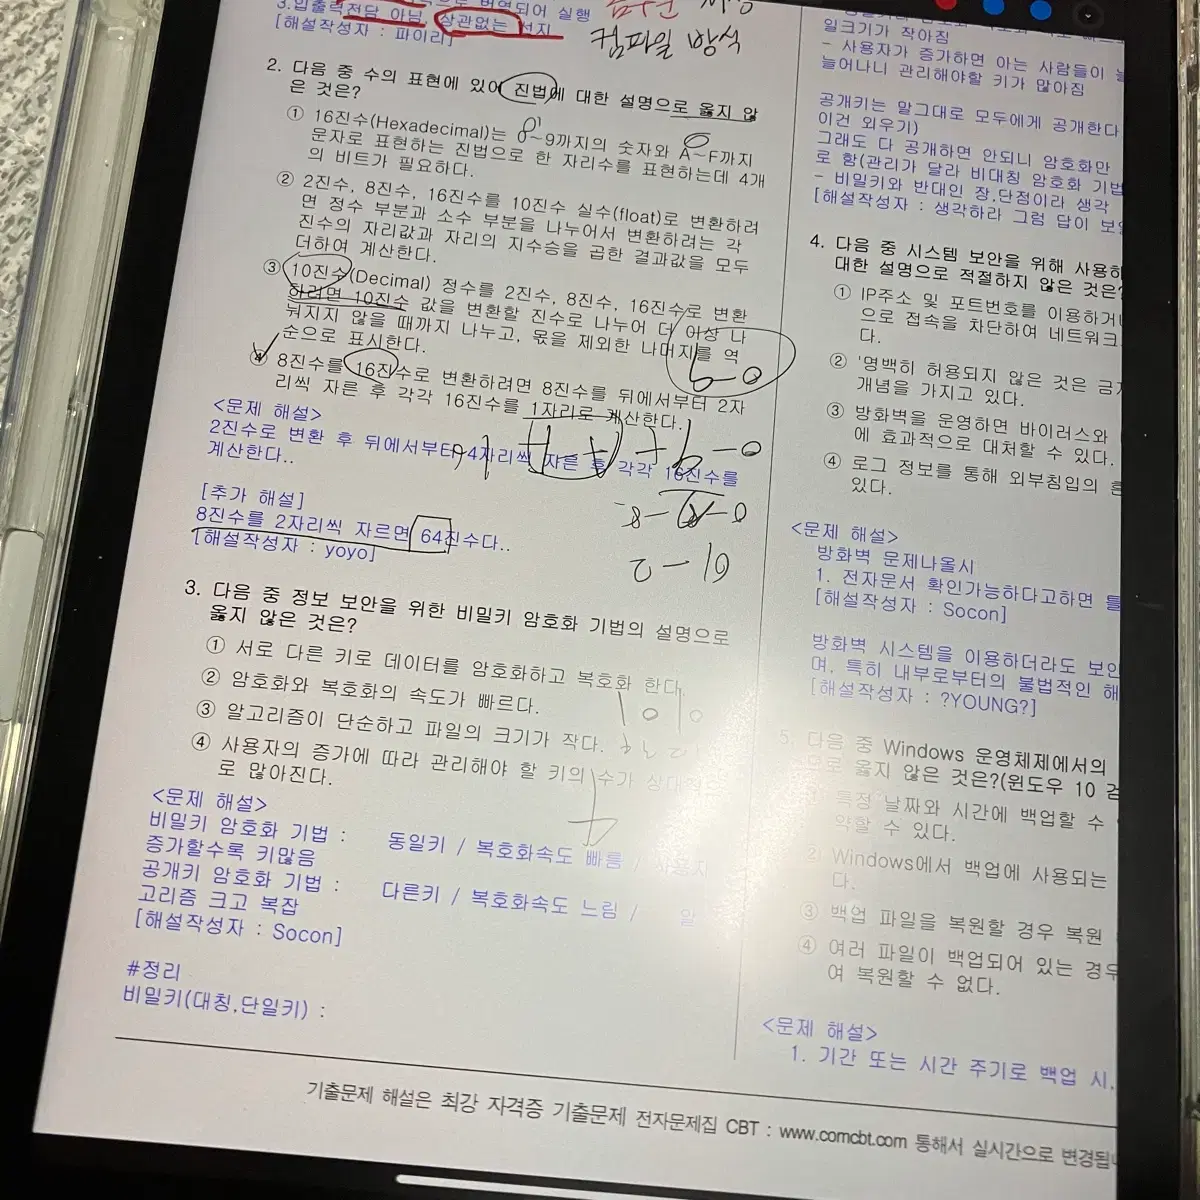 번역되어 실행
3.입출력전담 아님, 상관없는 선지
[해설작성자 : 파이리]
컴파일 방식
2. 다음 중 수의 표현에 있어 진법에 대한 설명으로 옳지 않
은 것은?
① 16진수(Hexadecimal)는 ~9까지의 숫자와 A~F까지
문자로 표현하는 진법으로 한 자리수를 표현하는데 4개
의 비트가 필요하다.
② 2진수, 8진수, 16진수를 10진수 실수(float)로 변환하려
면 정수 부분과 소수 부분을 나누어서 변환하려는 각
진수의 자리값과 자리의 지수승을 곱한 결과값을 모두
더하여 계산한다.
③ 10진수(Decimal) 정수를 2진수, 8진수, 16진수로 변환
하려면 10진수 값을 변환할 진수로 나누어 더 이상 나
눠지지 않을 때까지 나누고, 몫을 제외한 나머지를 역
순으로 표시한다.
④ 8진수를 16진수로 변환하려면 8진수를 뒤에서부터 2자
리씩 자른 후 각각 16진수를 1자리로 계산한다.
<문제 해설>
2진수로 변환 후 뒤에서부터 4자리씩 자른 후 각각 16진수를
계산한다..
[추가 해설]
8진수를 2자리씩 자르면 64진수다..
[해설작성자 : yoyo]
3. 다음 중 정보 보안을 위한 비밀키 암호화 기법의 설명으로
옳지 않은 것은?
① 서로 다른 키로 데이터를 암호화하고 복호화 한다.
② 암호화와 복호화의 속도가 빠르다.
③ 알고리즘이 단순하고 파일의 크기가 작다.
④ 사용자의 증가에 따라 관리해야 할 키의 수가 상대적으
로 많아진다.
<문제 해설>
비밀키 암호화 기법 : 동일키 / 복호화속도 빠름 / 사용자
증가할수록 키많음
공개키 암호화 기법 : 다른키 / 복호화속도 느림 / 알
고리즘 크고 복잡
[해설작성자 : Socon]
#정리
비밀키(대칭,단일키) :
일크기가 작아짐
- 사용자가 증가하면 아는 사람들이
늘어나니 관리해야할 키가 많아짐
공개키는 말그대로 모두에게 공개한다
이건 외우기)
그래도 다 공개하면 안되니 암호화만
로 함(관리가 달라 비대칭 암호화 기법
- 비밀키와 반대인 장,단점이라 생각
[해설작성자 : 생각하라 그럼 답이 보
4. 다음 중 시스템 보안을 위해 사용하
대한 설명으로 적절하지 않은 것은?
① IP주소 및 포트번호를 이용하거나
으로 접속을 차단하여 네트워크
다.
② '명백히 허용되지 않은 것은 금지
개념을 가지고 있다.
③ 방화벽을 운영하면 바이러스와
에 효과적으로 대처할 수 있다.
④ 로그 정보를 통해 외부침입의 흔
있다.
<문제 해설>
방화벽 문제나올시
1. 전자문서 확인가능하다고하면 틀
[해설작성자 : Socon]
방화벽 시스템을 이용하더라도 보안
며, 특히 내부로부터의 불법적인 해
[해설작성자 : ?YOUNG?]
5. 다음 중 Windows 운영체제에서의
으로 옳지 않은 것은?(윈도우 10 검
① 특정 날짜와 시간에 백업할 수
약할 수 있다.
② Windows에서 백업에 사용되는
다.
③ 백업 파일을 복원할 경우 복원
④ 여러 파일이 백업되어 있는 경우
여 복원할 수 없다.
<문제 해설>
1. 기간 또는 시간 주기로 백업 시,
기출문제 해설은 최강 자격증 기출문제 전자문제집 CBT : www.comcbt.com 통해서 실시간으로 변경됩니